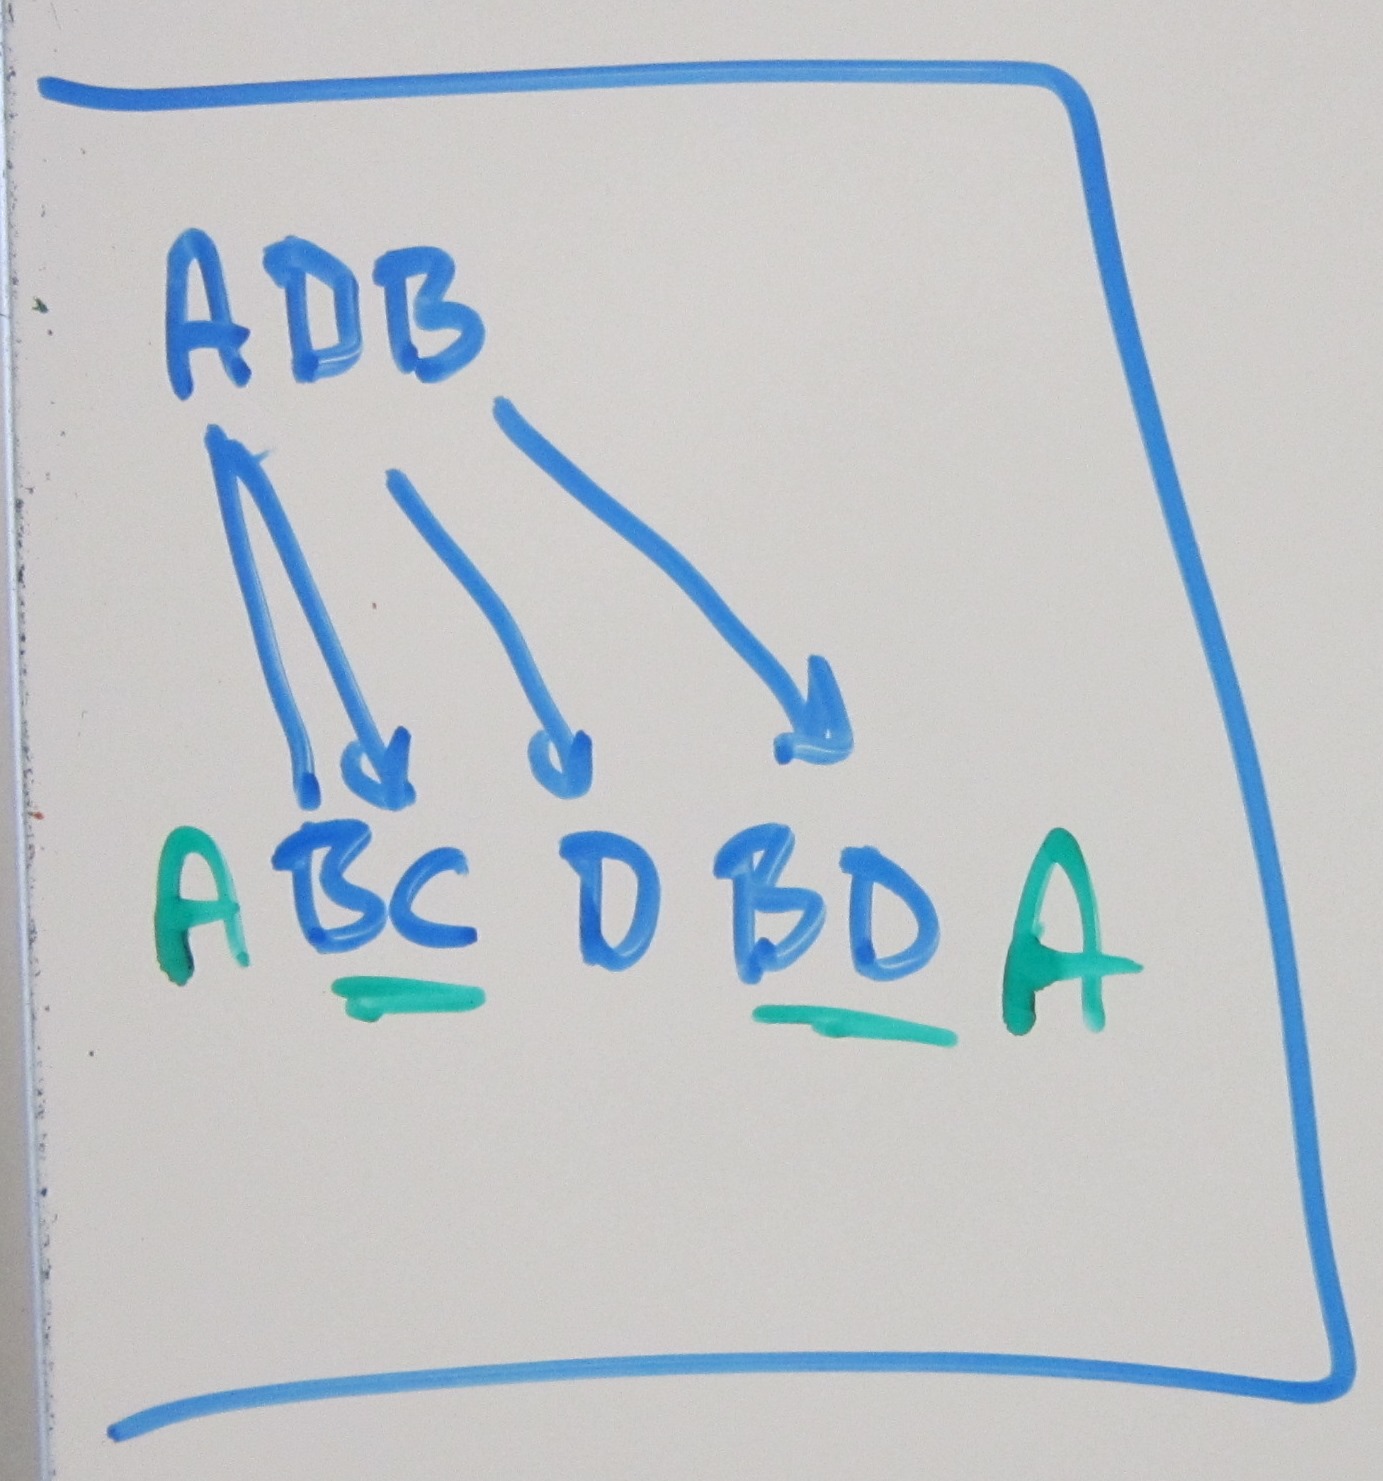 ADB
A BC D BD A